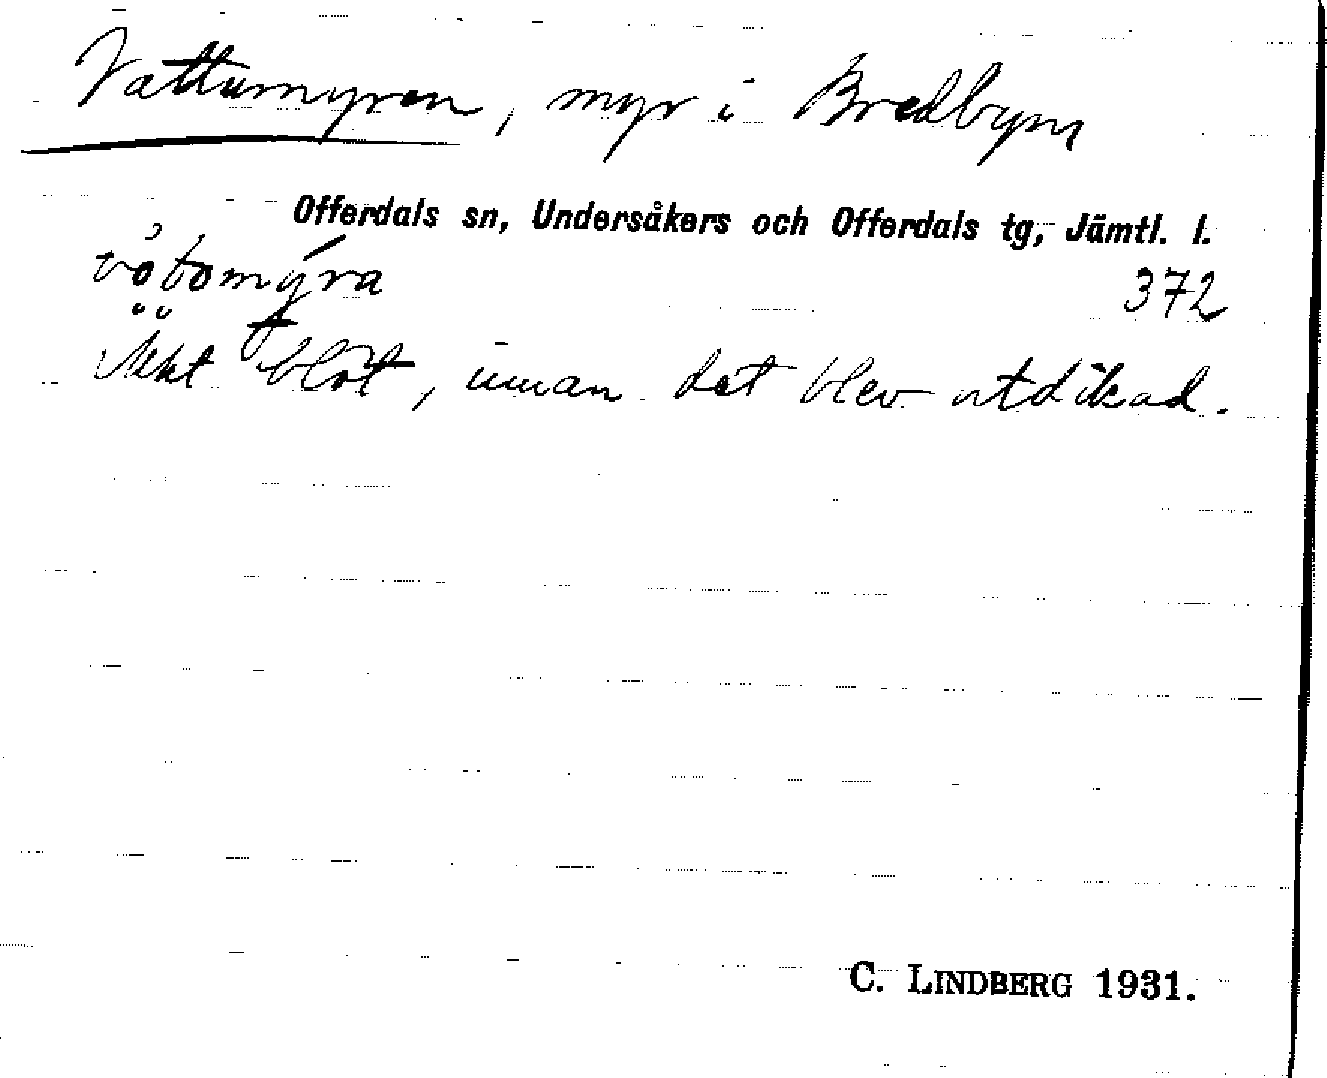 Vattumyren, myr i Bredbyn
Offerdals sn, Undersåkers och Offerdals tg, Jämtl. l.
372
blöt, innan det blev utdikad.
C. LINDBERG 1931.